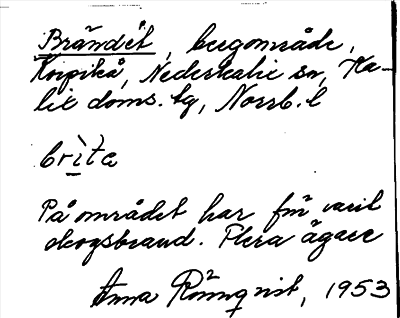 Brändet, bergområde,
Korpikå, Nederkalix sn, Ka-
lix doms. tg, Norrb. l
brìta
På området har förr varit
skogsbrand. Flera ägare
Anna Rönnqvist, 1953